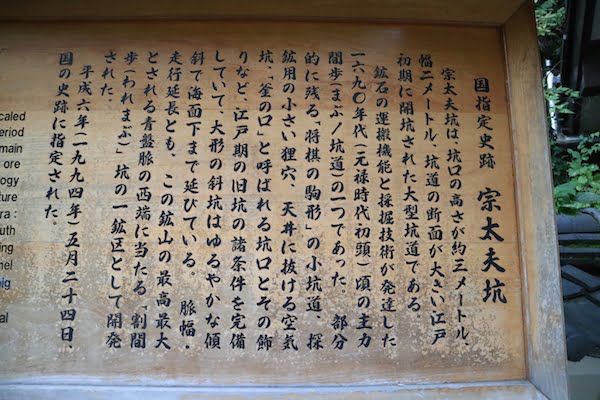 国指定史跡 宗太夫坑
宗太夫坑は、坑口の高さが約三メートル、
幅二メートル、坑道の断面が大きい江戸
初期に開坑された大型坑道である。
鉱石の運搬機能と採掘技術が発達した
一六九〇年代(元禄時代初頭)頃の主力
間歩(まぶ/坑道)の一つであった。部分
的に残る、将棋の駒形"の小坑道、探
鉱用の小さい狸穴、天井に抜ける空気
坑、「釜の口」と呼ばれる坑口とその飾
りなど、江戸期の旧坑の諸条件を完備
していて、大形の斜坑はゆるやかな傾
斜で海面下まで延びている。 脈幅・
走行延長とも、この鉱山の最高最大
とされる青盤脈の西端に当たる「割間
歩(われまぶ)」坑の一鉱区として開発
された。
平成六年(一九九四年)五月二十四日、
国の史跡に指定された。
caled
eriod
main
ore
ogy
ture
ra :
uth
ing
nel
big
al